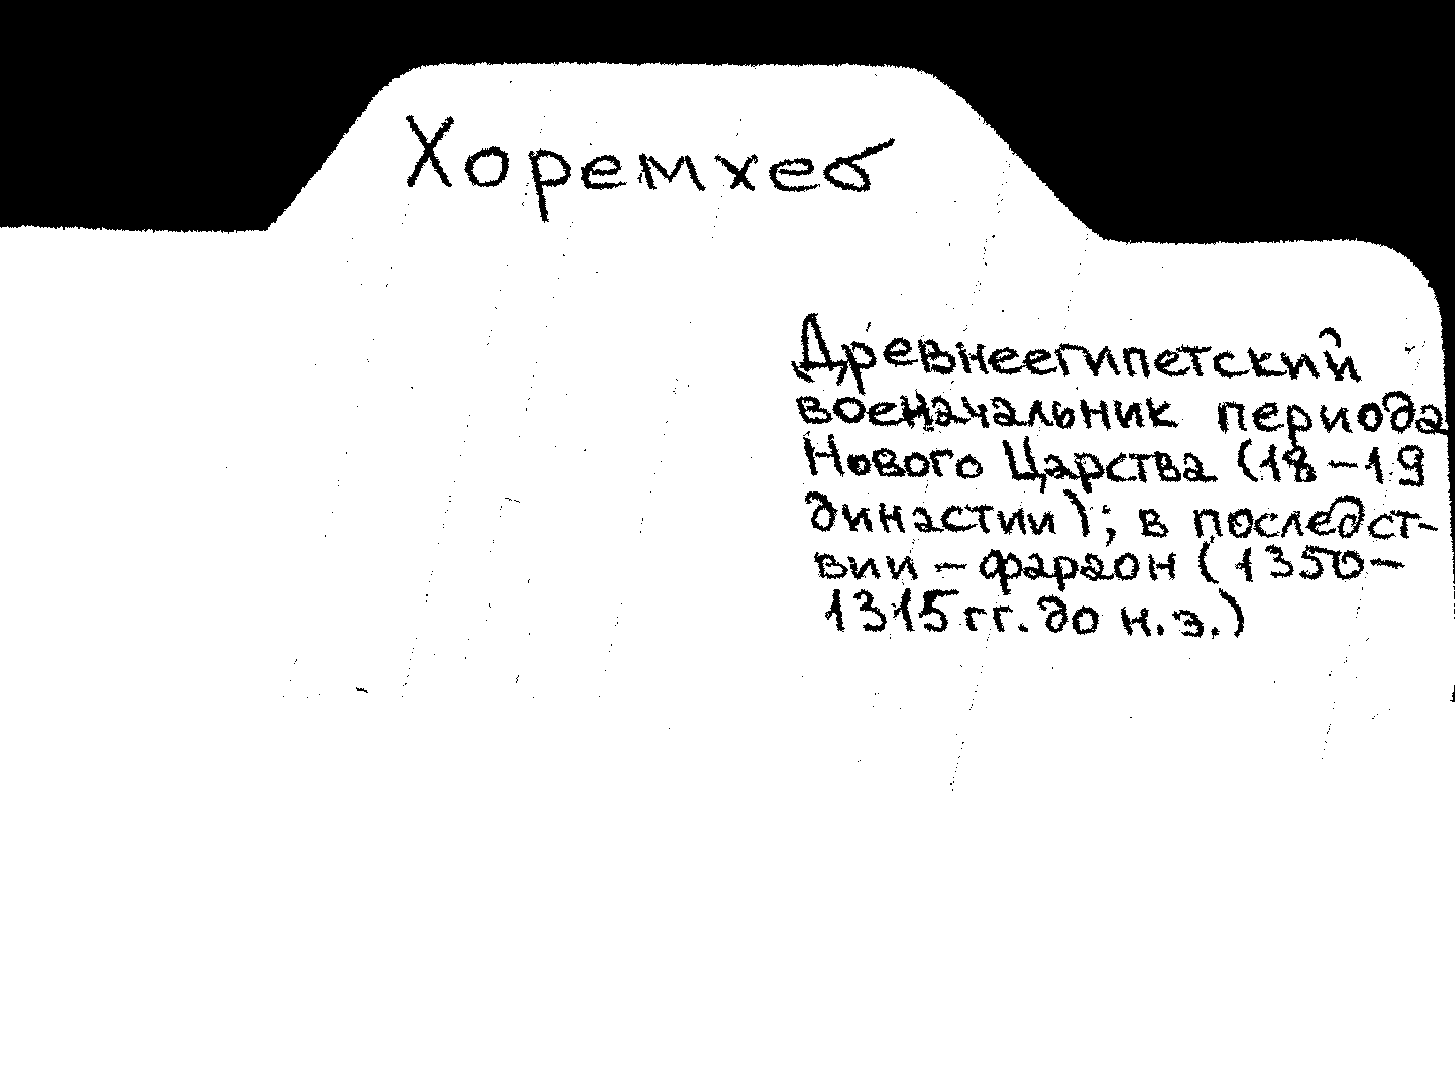 Хоремхеб
Древнеегипетский
военачальник периода
Нового Царства (18-19
династии); в последст-
вии - фараон (1350-
1315 гг. до н.э.)